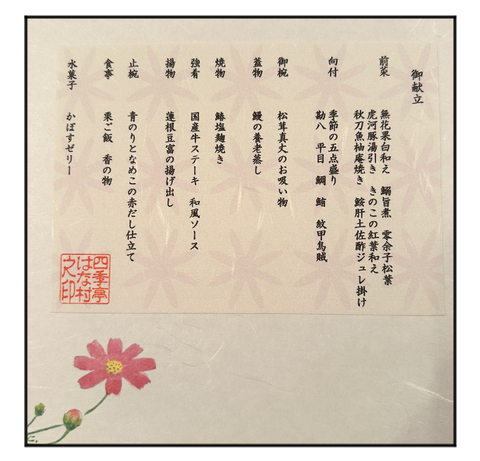 御献立
前菜 無花果白和え 鰯旨煮 零余子松葉
虎河豚湯引き きのこの紅葉和え
秋刀魚柚庵焼き 鮟肝土佐酢ジュレ掛け
向付 季節の五点盛り
勘八 平目 鯛 鮪 紋甲烏賊
御椀 松茸真丈のお吸い物
蓋物 鰻の養老蒸し
焼物 鰆塩麹焼き
強肴 国産牛ステーキ 和風ソース
揚物 蓮根豆富の揚げ出し
止椀 青のりとなめこの赤だし仕立て
食事 栗ご飯 香の物
水菓子 かぼすゼリー
四季亭
はな村
之印